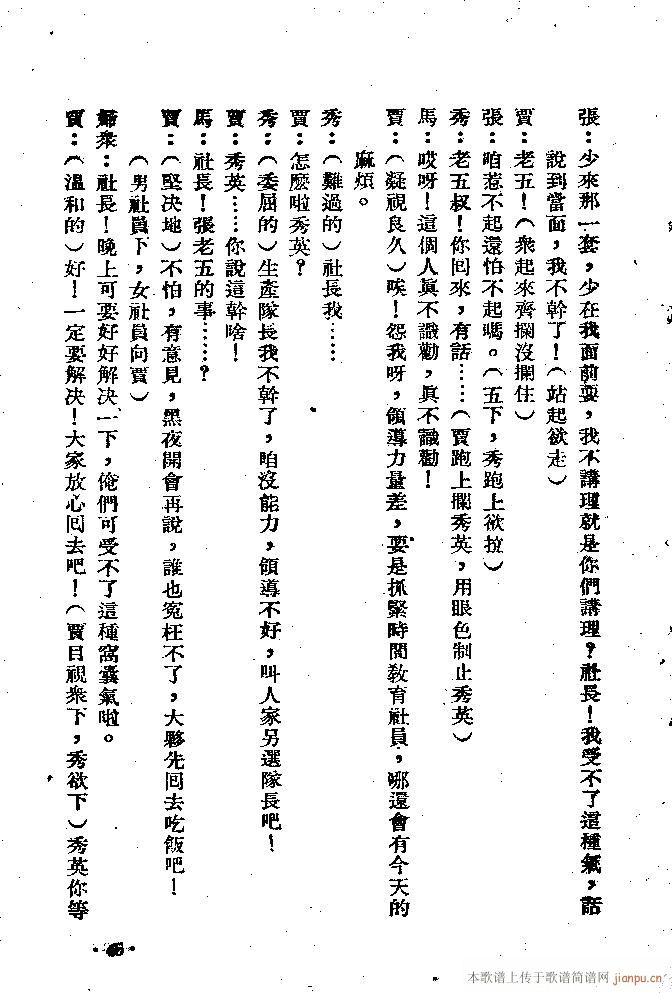 張：少來那一套，少在我面前耍，我不講理就是你們講理？社長！我受不了這種氣，話
說到當面，我不幹了！（站起欲走）
賈：老五！（衆起來齊攔沒攔住）
張：咱惹不起還怕不起嗎。（五下，秀跑上欲拉）
秀：老五叔！你回來，有話……（賈跑上攔秀英，用眼色制止秀英）
馬：哎呀！這個人眞不識勸，眞不識勸！
賈：（凝視良久）唉！怨我呀，領導力量差，要是抓緊時間敎育社員，哪還會有今天的
麻煩。
秀：（難過的）社長我……
賈：怎麽啦秀英？
秀：（委屈的）生產隊長我不幹了，咱沒能力，領導不好，叫人家另選隊長吧！
賈：秀英……你說這幹啥！
馬：社長！張老五的事……？
賈：（堅决地）不怕，有意見，黑夜開會再說，誰也寃枉不了，大夥先回去吃飯吧！
（男社員下，女社員向賈）
婦衆：社長！晚上可要好好解决一下，俺們可受不了這種窩囊氣啦。
賈：（溫和的）好！一定要解决！大家放心回去吧！（賈目視衆下，秀欲下）秀英你等
本歌谱上传于歌谱简谱网 jianpu.cn